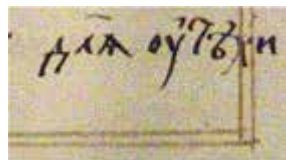 длѧ оутѣхи